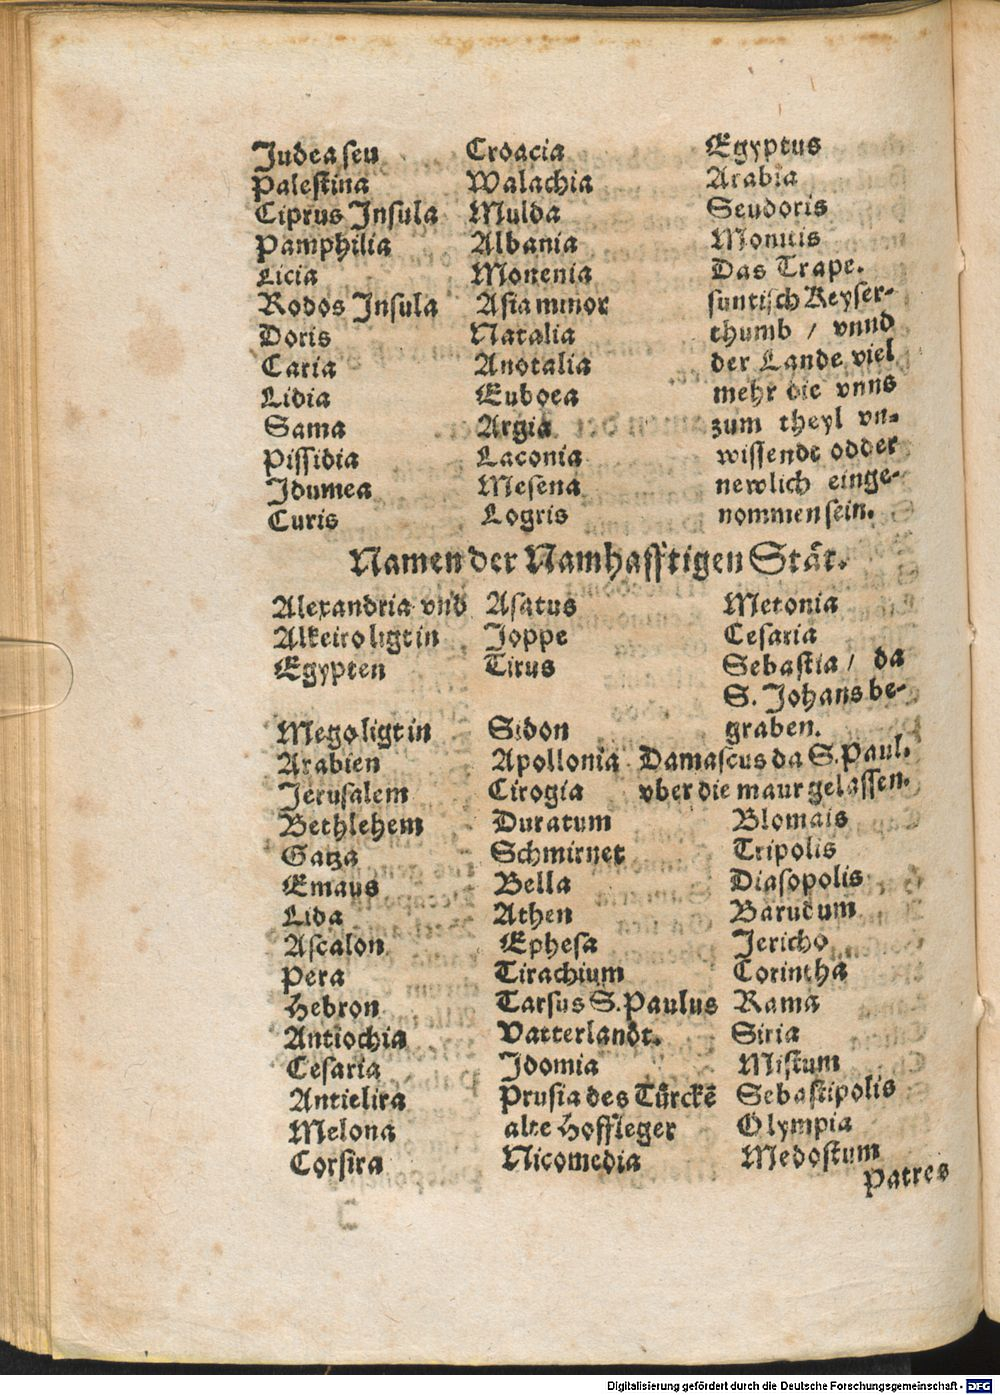 Judea seu
Palestina
Ciprus Insula
Pamphilia
Licia
Rodos Insula
Doris
Caria
Lidia
Sama
Pissidia
Idumea
Curis
Croacia
Walachia
Mulda
Albania
Monenia
Asia minor
Natalia
Anotalia
Euboea
Argia
Laconia
Mesena
Logris
Egyptus
Arabia
Seudoris
Monuis
Das Trape.
suntisch Keyser-
thumb / vnnd
der Lande viel
mehr die vnns
zum theyl vn-
wissende odder
newlich einge-
nommen sein.
Namen der Namhafftigen Stät.
Alexandria vnd
Alkeiro ligt in
Egypten
Mego ligt in
Arabien
Jerusalem
Bethlehem
Gatza
Emaus
Lida
Ascalon
Pera
Hebron
Antiochia
Cesaria
Antielira
Melona
Corsira
Asatus
Joppe
Tirus
Sidon
Apollonia
Cirogia
Duratum
Schmirnet
Bella
Athen
Ephesa
Tirachium
Tarsus S. Paulus
Vatterlandt.
Idomia
Prusia des Türckē
alte Hoffleger
Nicomedia
Metonia
Cesaria
Sebastia / da
S. Johans be-
graben.
Damascus da S. Paul.
vber die maur gelassen.
Blomais
Tripolis
Diasopolis
Barudum
Jericho
Corintha
Rama
Siria
Mistum
Sebastipolis
Olympia
Medostum
Patres
Digitalisierung gefördert durch die Deutsche Forschungsgemeinschaft - DFG